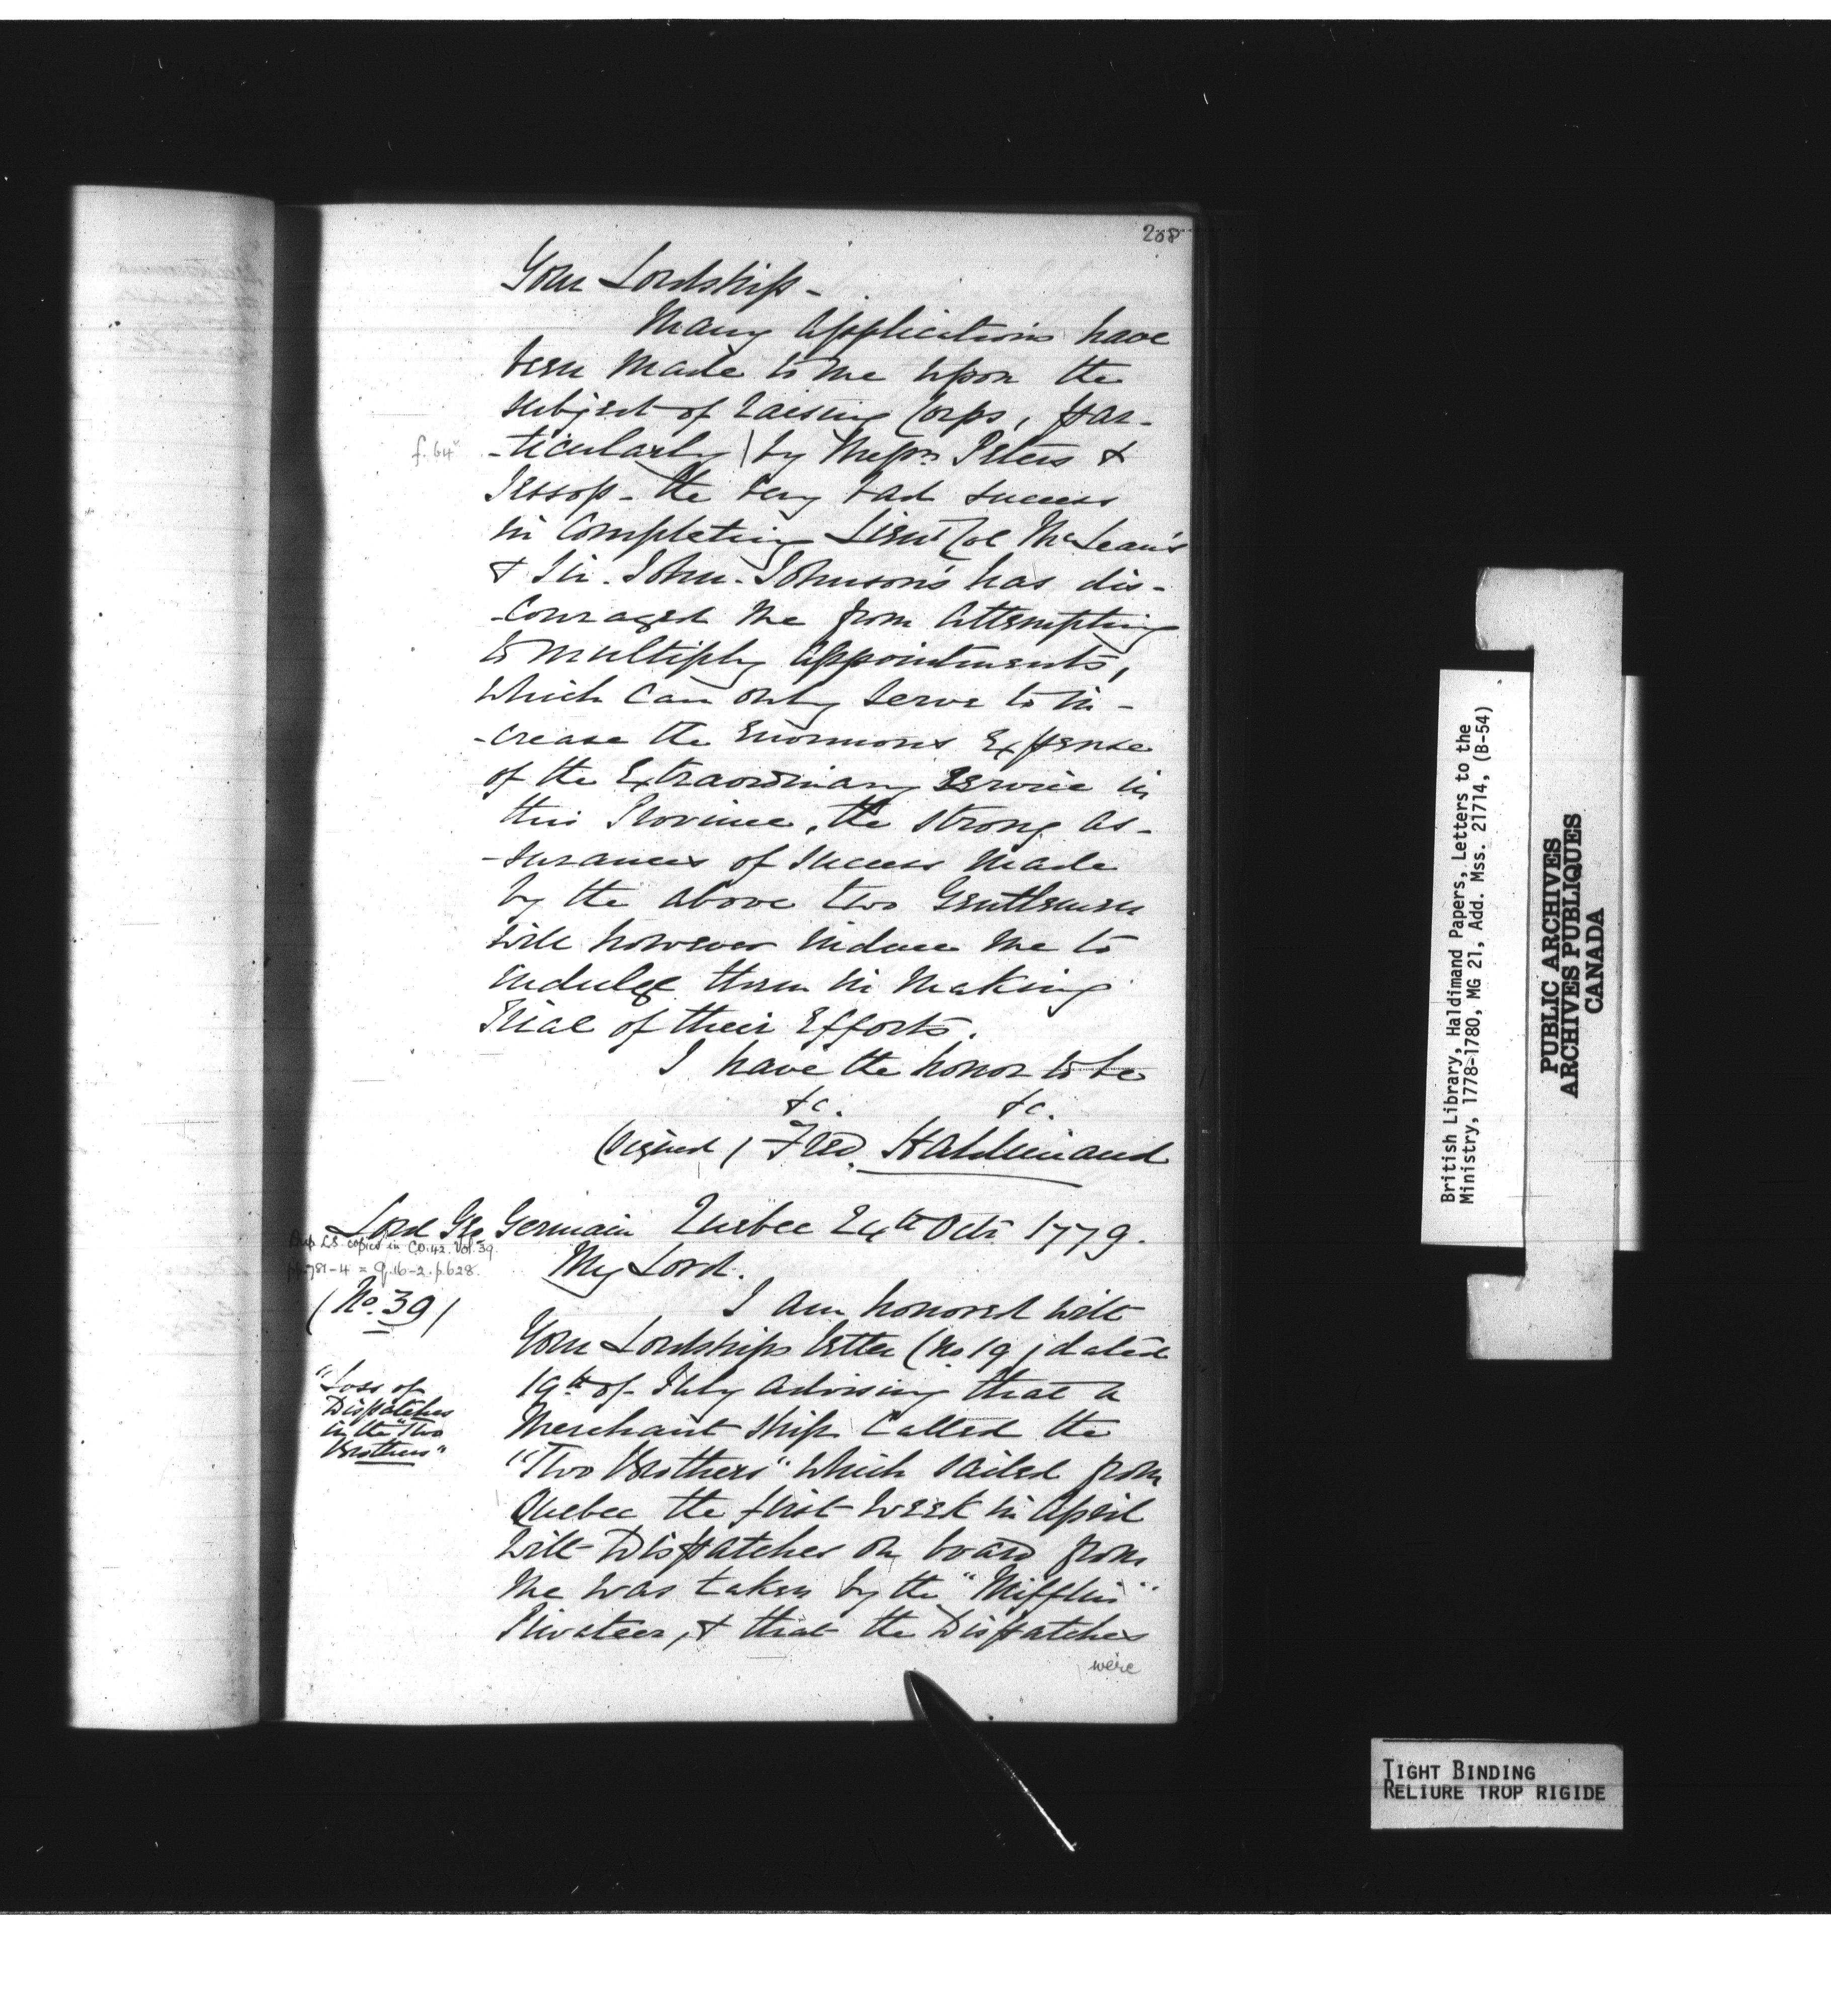 208
Your Lordship -
Many applications have
been made to me upon the
subject of raising Corps, par-
f. 64v
-ticularly | by Messrs. Peters &
Jessop - the very bad success
in Completing Lieut Col McLean's
& Sir John Johnson's has dis-
-couraged me from attempting
to multiply appointments,
which can only serve to in-
-crease the Enormous Expense
of the Extraordinary Service in
this Province, the strong as-
-surances of success made
by the above two Gentlemen
will however induce me to
indulge them in making
Trial of their Efforts.
I have the honor to be
&c. &c.
(signed) Fred. Haldimand
Lord Geo Germain Quebec 24th Octr 1779.
Dup. L.S. copies in C.O. 42. Vol. 39.
pp. 781-4 = Q. 16-2. p. 628.
My Lord.
(No. 39)
I am honored with
Your Lordships letter (No 19) dated
"Loss of
Dispatches
in the "Two
Brothers"
19th of July advising that a
Merchant Ship Called the
"Two Brothers" which sailed from
Quebec the first week in April
with Dispatches on board from
me was taken by the "Mifflin"
Privateer, & that the Dispatches
were
British Library, Haldimand Papers, Letters to the
Ministry, 1778-1780, MG 21, Add. Mss. 21714, (B-54)
PUBLIC ARCHIVES
ARCHIVES PUBLIQUES
CANADA
TIGHT BINDING
RELIURE TROP RIGIDE